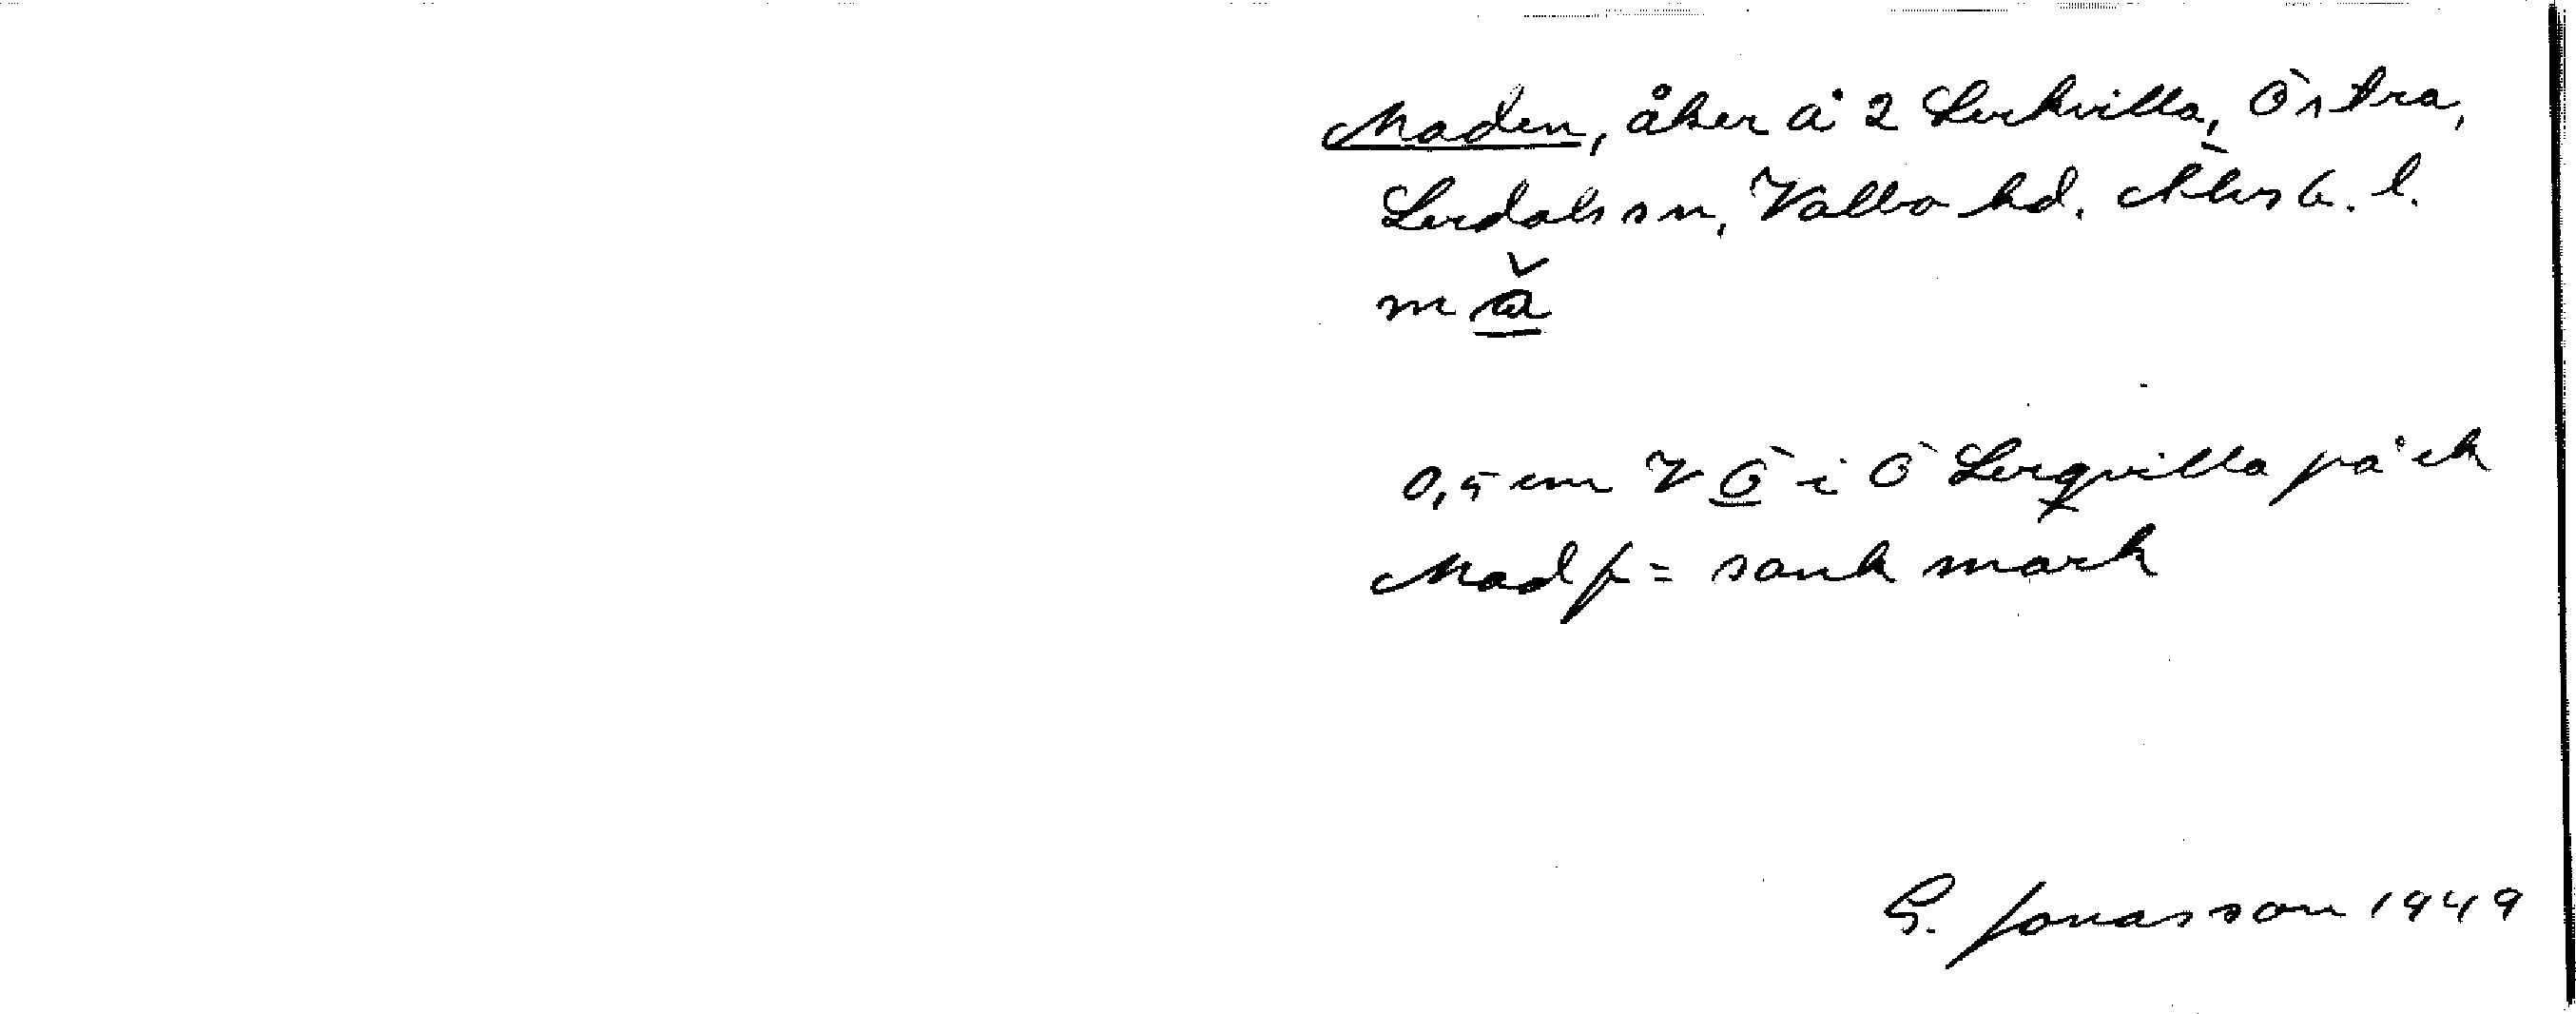 Maden, åker å 2 Lerkvilla, Östra,
Lerdals sn, Valbo hd. Älvsb. l.
mǎ
0,5 cm V Ö i Ö Lerqvilla på ek
Mad f = sank mark
G. Jonasson 1949